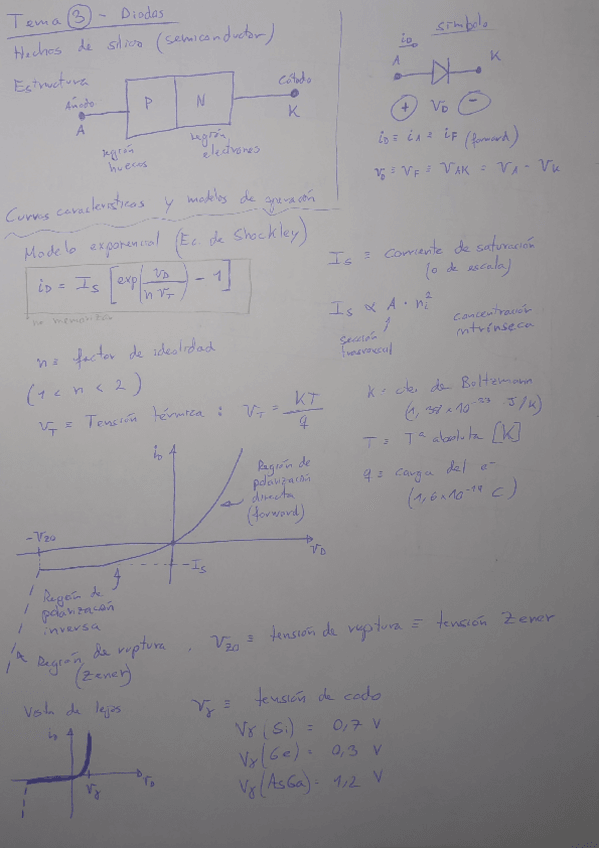 Tema 3 - Diodos
Hechos de silicio (semiconductor)
Estructura
Ánodo
A
P
N
Cátodo
K
región huecos
región electrones
símbolo
iD
A
K
+ VD -
iD ≡ iA ≡ iF (forward)
VD ≡ VF ≡ VAK = VA - VK
Curvas características y modelos de operación
Modelo exponencial (Ec. de Shockley)
iD = IS [exp(VD / n VT) - 1]
no memorizar
IS ≡ corriente de saturación
(o de escala)
IS ∝ A · ni²
sección transversal
concentración intrínseca
n ≡ factor de idealidad
(1 < n < 2)
VT ≡ Tensión térmica : VT = KT / q
K = cte. de Boltzmann
(1,38 x 10^-23 J/K)
T ≡ Tª absoluta [K]
q ≡ carga del e-
(1,6x10^-19 C)
iD
Región de
polarización
directa
(forward)
-VZ0
VD
-IS
Región de
polarización
inversa
Región de ruptura , VZ0 ≡ tensión de ruptura ≡ tensión Zener
(Zener)
Vista de lejos
iD
VD
Vγ
Vγ ≡ tensión de codo
Vγ (Si) = 0,7 V
Vγ (Ge) = 0,3 V
Vγ (AsGa) = 1,2 V